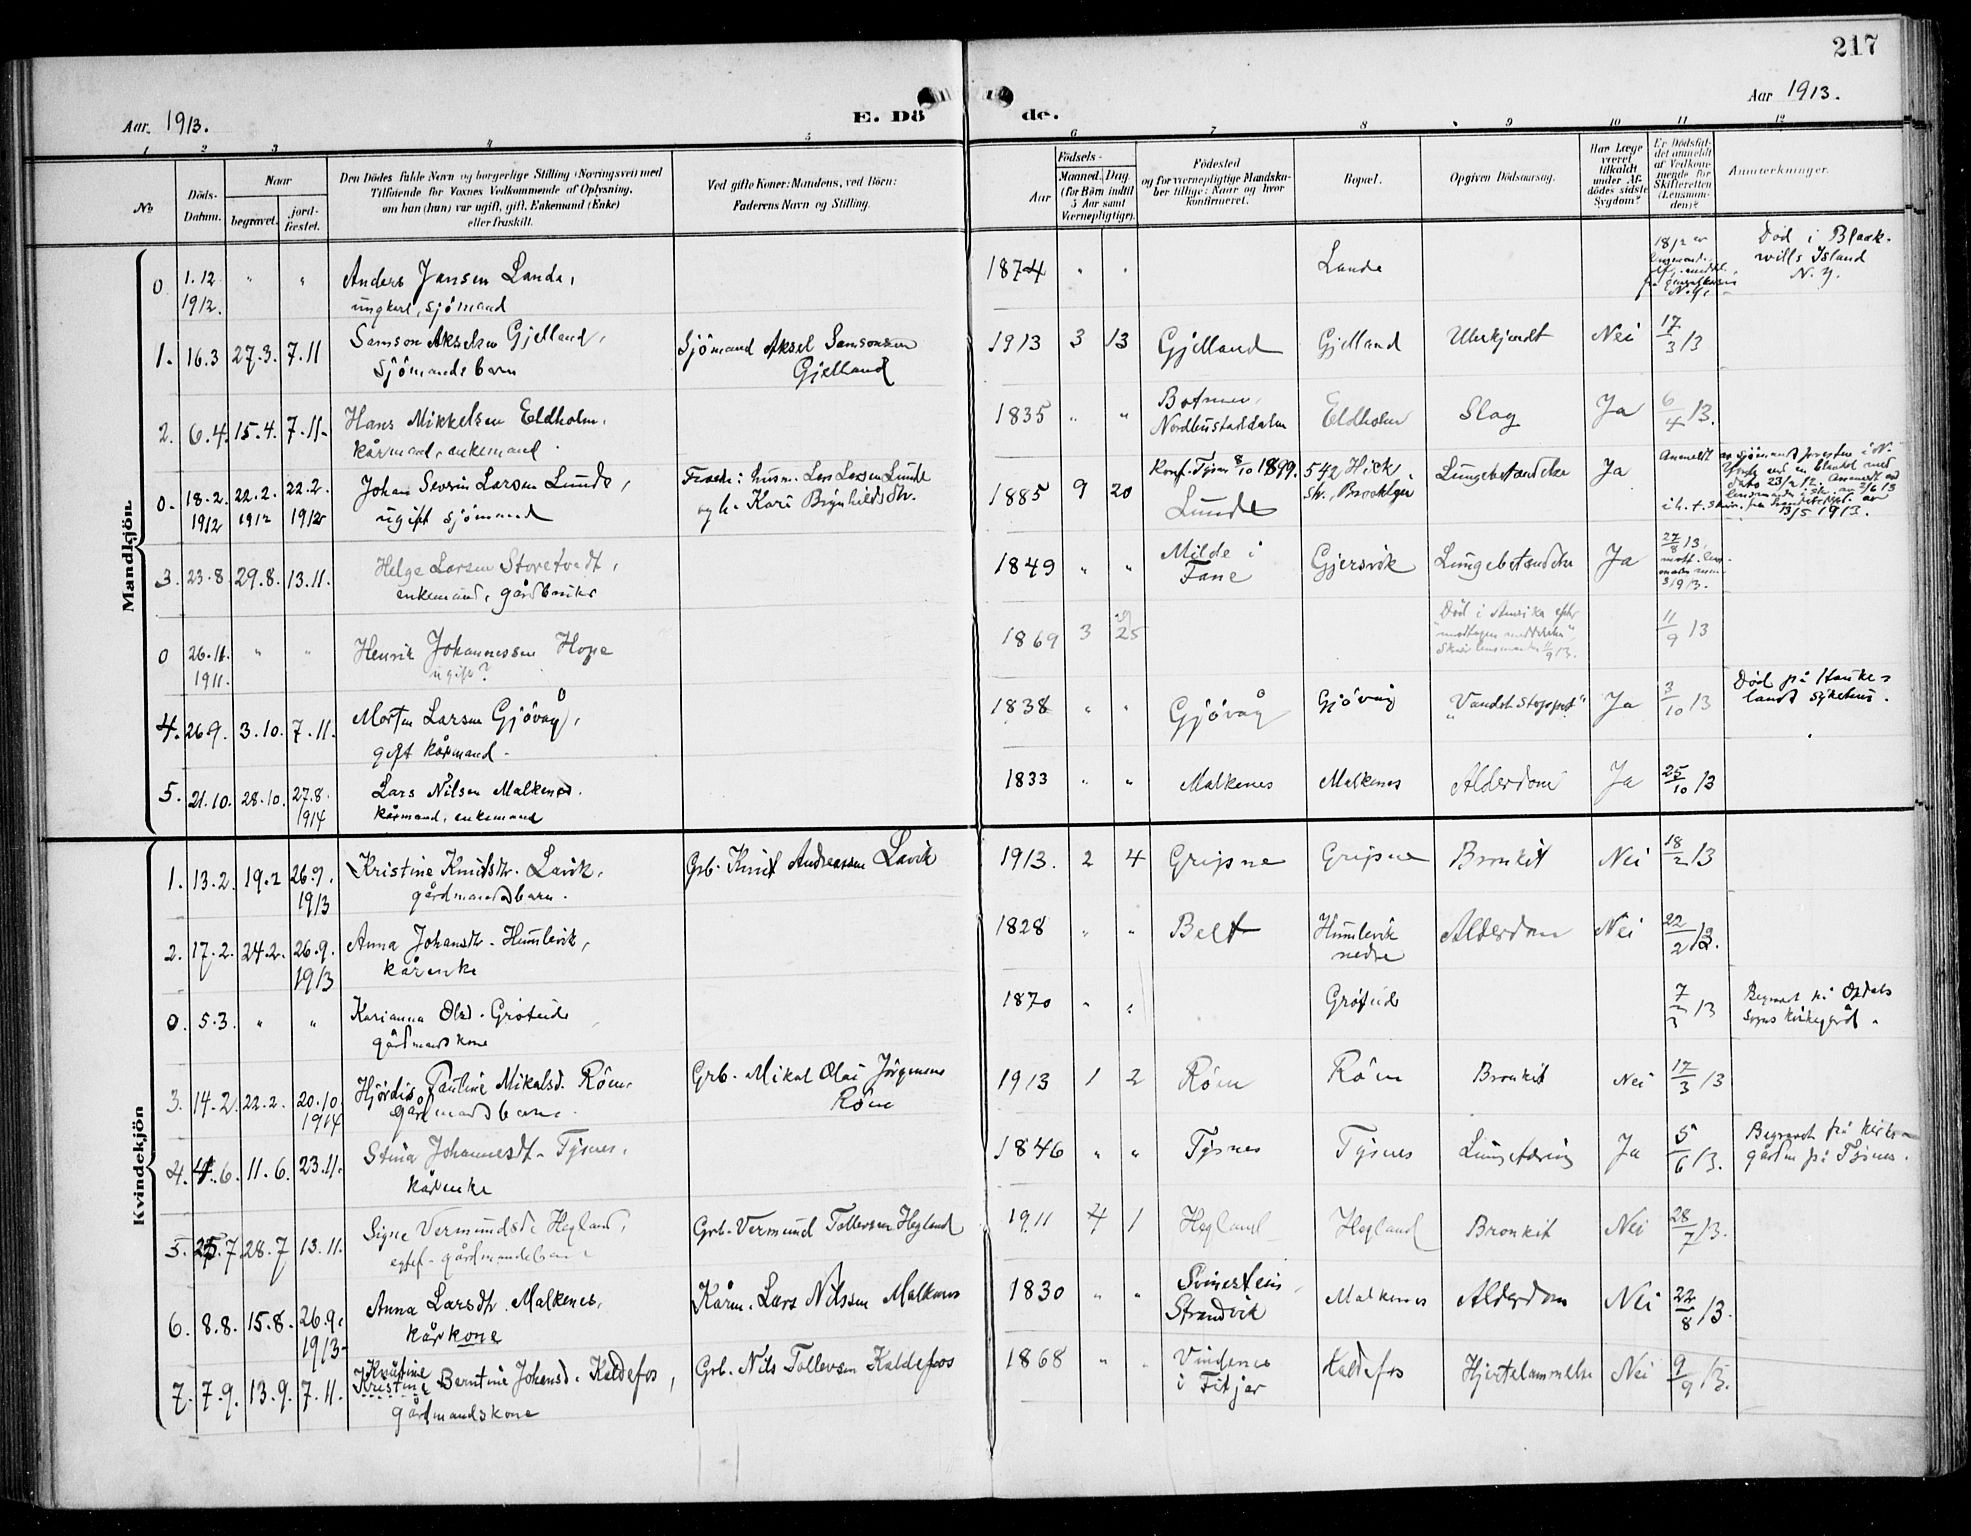 217
Aar. 1913.
E. Dö de.
Aar 1913.
1 2 3 4 5 6 7 8 9 10 11 12
No
Döds-
Datum.
Naar
begravet.
jord-
fæstet.
Den Dödes fulde Navn og borgerlige Stilling (Næringsvei) med
Tilföiende for Voxnes Vedkommende af Oplysning,
om han (hun) var ugift, gift, Enkemand (Enke)
eller fraskilt.
Ved gifte Koner: Mandens, ved Börn:
Faderens Navn og Stilling.
Födsels-
Aar
Maaned. Dag.
(for Börn indtil
5 Aar samt
Værnepligtige).
Födested
og for værnepligtige Mandska-
ber tillige: Naar og hvor
konfirmeret.
Bopæl.
Opgiven Dödsaarsag.
Har Læge
været
tilkaldt
under Af-
dödes sidste
Sygdom?
Er Dödsfal-
det anmeldt
af Vedkom-
mende for
Skifteretten
(Lensman-
den)?
Anmærkninger.
Mandkjön.
0 1.12 " " Anders Jansen Lande, 1874 " " Lande Död i Black-
1912. ungkarl, sjömand wills Island
N.Y.
1. 16.3 27.3. 7.11 Samson Akselsen Gjelland, Sjömand Aksel Samsonsen 1913 3 13 Gjelland Gjelland Ukjendt Nei 17/3 13
Sjömandsbarn Gjelland
2. 6.4. 15.4. 7.11. Hans Mikkelsen Eldholm, 1835 " " Nordhustaddalen Eldholm Slag Ja 6/4 13.
kårmand, enkemand
0. 18.2. 22.2. 22.2. Johan Severin Larsen Lunde, Lars Larsen Lunde 1885 9 20 Konf. Tysnes 8/10 1899. 542 Hick Lungebetændelse Ja Anmeldt
1912 1912 1912 ugift sjömand og h. Kari Brynhildsdtr. Lunde Str., Brooklyn 13/5 1913.
3. 23.8 29.8. 13.11. Helge Larsen Storetvedt, 1849 " " Milde i Gjersvik Lungebetændelse Ja 27/8 13,
enkemand, gårdbruker Fane
0 26.11. " " Henrik Johannessen Hope 1869 3 25 Död i Amerika 11/9 13
1911. ugift?
4. 26.9. 3.10. 7.11. Morten Larsen Gjövåg, 1838 " " Gjövåg Gjövåg "Vandstopper" Ja 3/10 13 Död på Hauke-
gift kårmand. land sykehus.
5. 21.10. 28.10. 27.8. Lars Nilsen Malkenes. 1833 " " Malkenes Malkenes Alderdom Ja 25/10 13
1914 kårmand, enkemand
Kvindekjön
1. 13.2. 19.2 26.9. Kristine Knutsdtr. Lavik, Grb. Knut Andreassen Lavik 1913. 2 4 Gripsne Gripsne Bronkit Nei 18/2 13
1913 gårdmandsbarn.
2. 17.2. 24.2. 26.9. Anna Johansdtr. Humlevik, 1828 " " Belt Humlevik Alderdom Nei 22/2 13.
1913 kårenke nedre
0. 5.3. " " Karianna Olsd. Gröteide 1870 " " Gröteide 7/3 13 Begravet på Opdals
gårdmandskone sogns kirkegård.
3. 14.2. 22.2. 20.10. Hjördis Pauline Mikalsd. Röen. Grb. Mikal Olai Jörgensen 1913 1 2 Röen Röen Bronkit Nei 17/3 13
1914 gårdmandsbarn. Röen
4. 4.6. 11.6. 23.11. Stina Johannesdt. Tysnes, 1846 " " Tysnes Tysnes Ja 5/6 13. Begravet på kirke-
kårenke gården på Tysnes.
5. 25.7. 28.7 13.11. Signe Vermundsdt. Hegland, Grb. Vermund Tollevsen Hegland 1911 4 1 Hegland Hegland Bronkit Nei 28/7 13.
gårdmandsbarn
6. 8.8. 15.8. 26.9. Anna Larsdtr. Malkenes, Kårm. Lars Nilssen Malkenes 1830 " " Malkenes Alderdom Nei 22/8 13.
1913. kårkone Strandvik
7. 7.9. 13.9. 7.11. Kristine Berntine Johansd. Kaldefos, Grb. Nils Tollevsen Kaldefos 1868 " " Vindenes Kaldefos Hjertelammelse Nei 9/9 13.
gårdmandskone i Fitjar